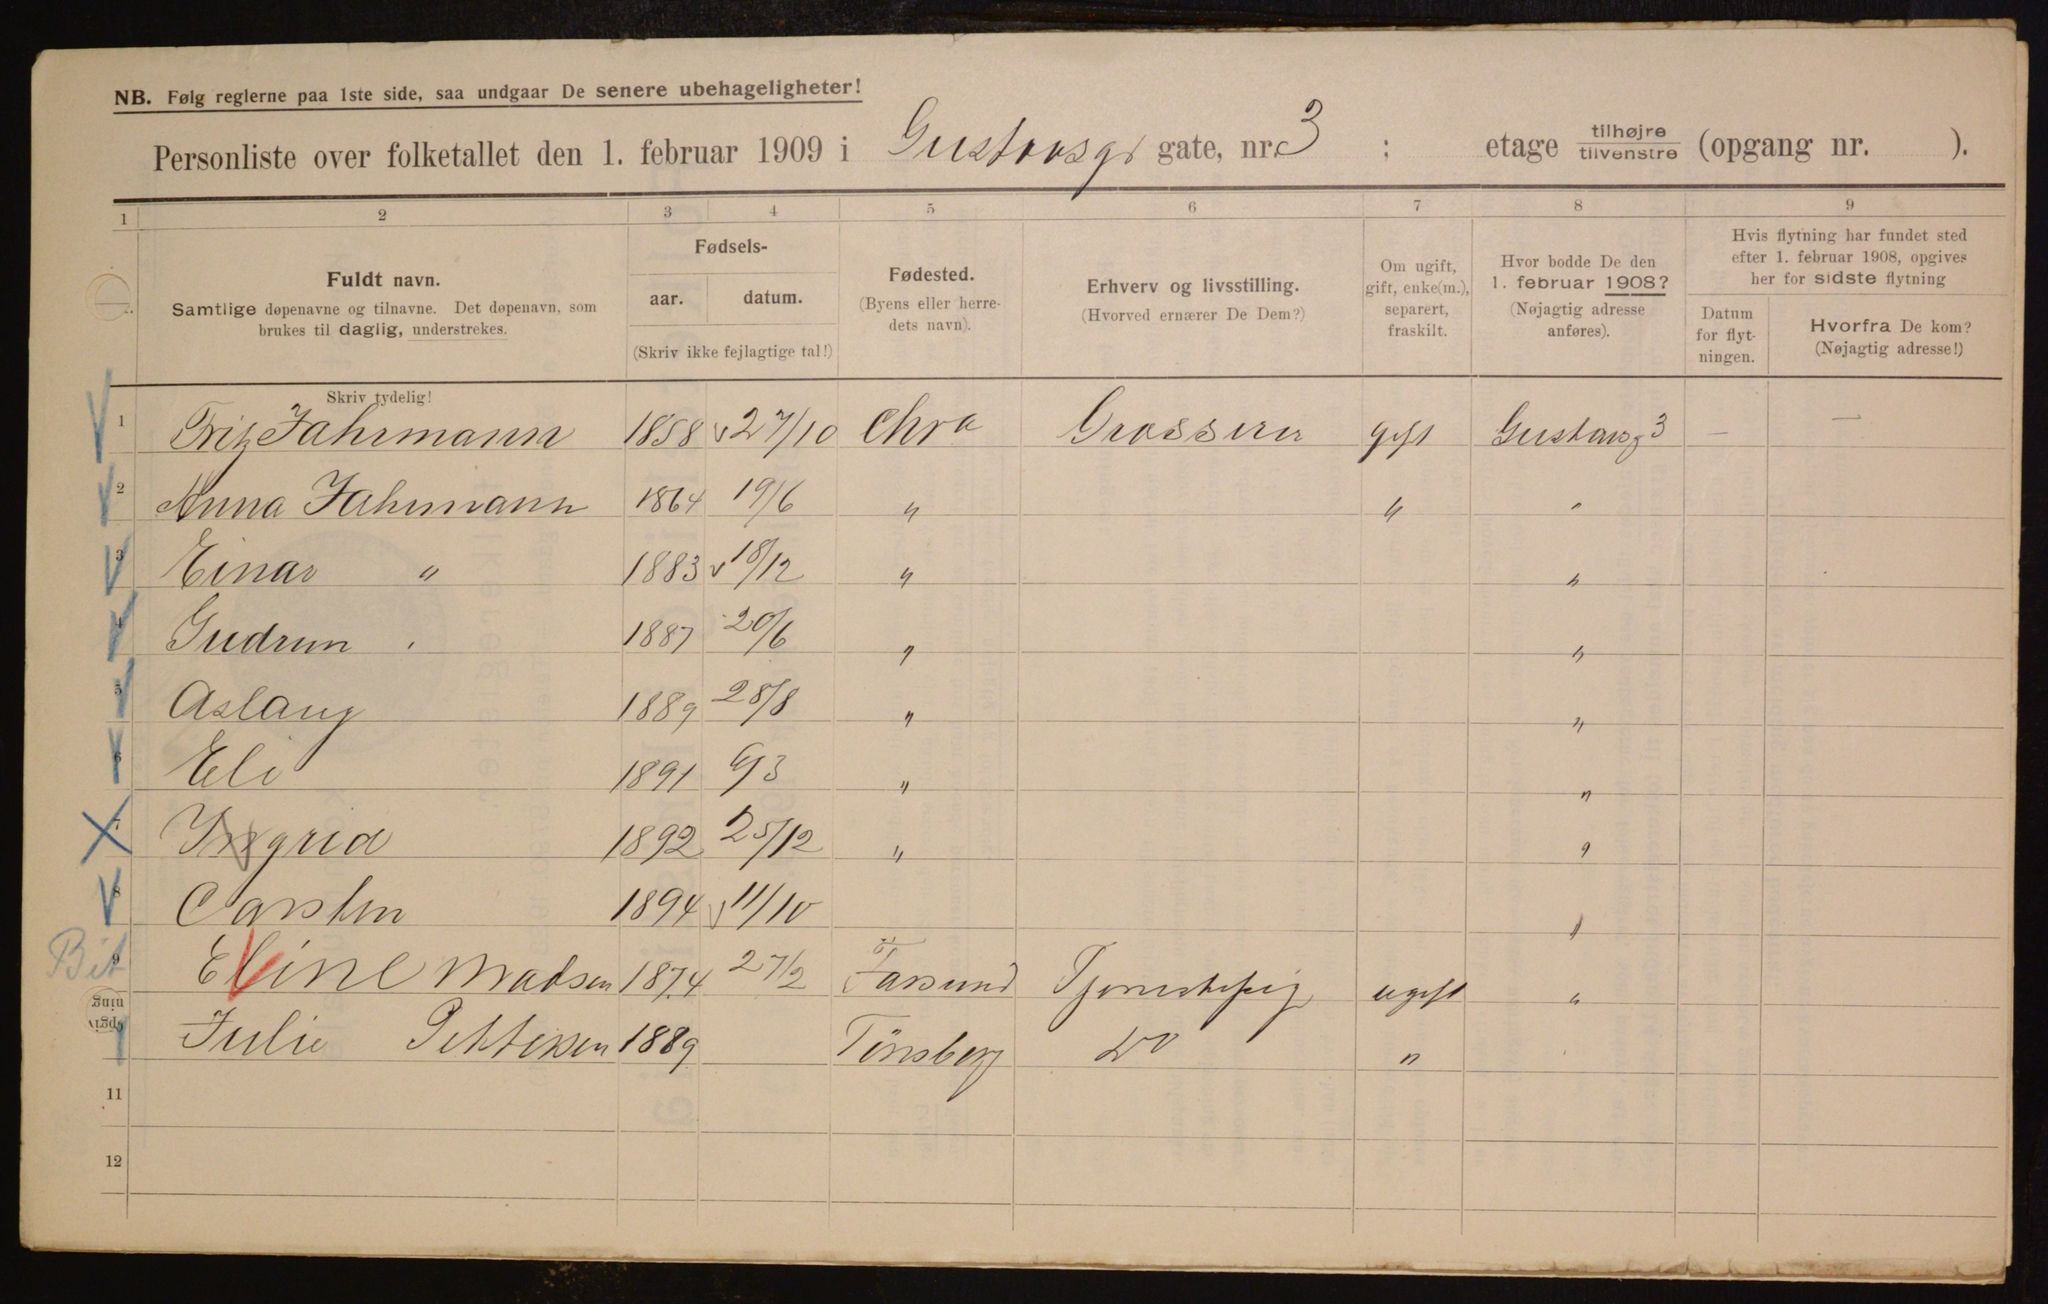 NB. Følg reglerne paa 1ste side, saa undgaar De senere ubehageligheter!
Personliste over folketallet den 1. februar 1909 i Gustavsgt gate, nr. 3 ; etage tilhøjre/tilvenstre (opgang nr. ).
1 2 3 4 5 6 7 8 9
Fuldt navn.
Samtlige døpenavne og tilnavne. Det døpenavn, som
brukes til daglig, understrekes.
Skriv tydelig!
Fødsels-
aar. datum.
(Skriv ikke fejlagtige tal!)
Fødested.
(Byens eller herre-
dets navn).
Erhverv og livsstilling.
(Hvorved ernærer De Dem?)
Om ugift,
gift, enke(m.),
separert,
fraskilt.
Hvor bodde De den
1. februar 1908?
(Nøjagtig adresse
anføres).
Hvis flytning har fundet sted
efter 1. februar 1908, opgives
her for sidste flytning
Datum
for flyt-
ningen.
Hvorfra De kom?
(Nøjagtig adresse!)
1 Fritz Jahrmann 1858 27/10 Chra Grosserer gift Gustavsg 3 — —
2 Anna Jahrmann 1864 19/6 " " "
3 Einar " 1883 18/12 " "
4 Gudrun " 1887 20/6 " "
5 Aslaug 1889 28/8 " "
6 Eli 1891 9/3 " "
7 Ingrid 1892 25/12 " "
8 Carsten 1894 11/10 "
Bit 9 Eline Madsen 1874 27/2 Farsund Tjenestepige ugift "
Julie Pettersen 1889 Tönsberg Do "
11
12